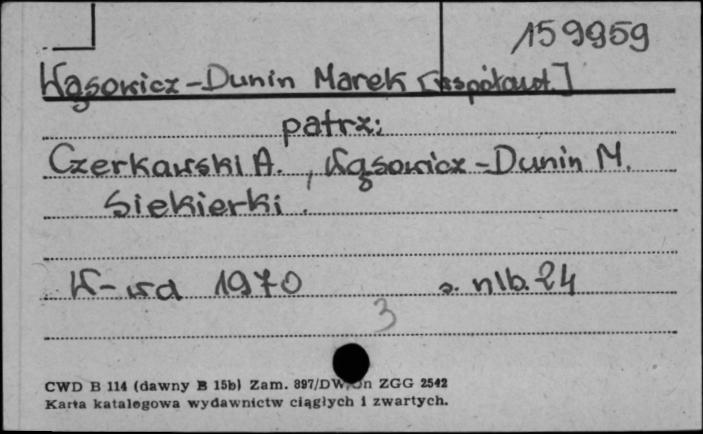 159959
Wąsowicz-Dunin Marek [współaut.]
patrz:
Czerkawski A., Wąsowicz-Dunin M.
Siekierki.
W-wa 1970 s. nlb. 24
3
CWD B 114 (dawny B 15b) Zam. 897/DW/Dn ZGG 2542
Karta katalogowa wydawnictw ciągłych i zwartych.